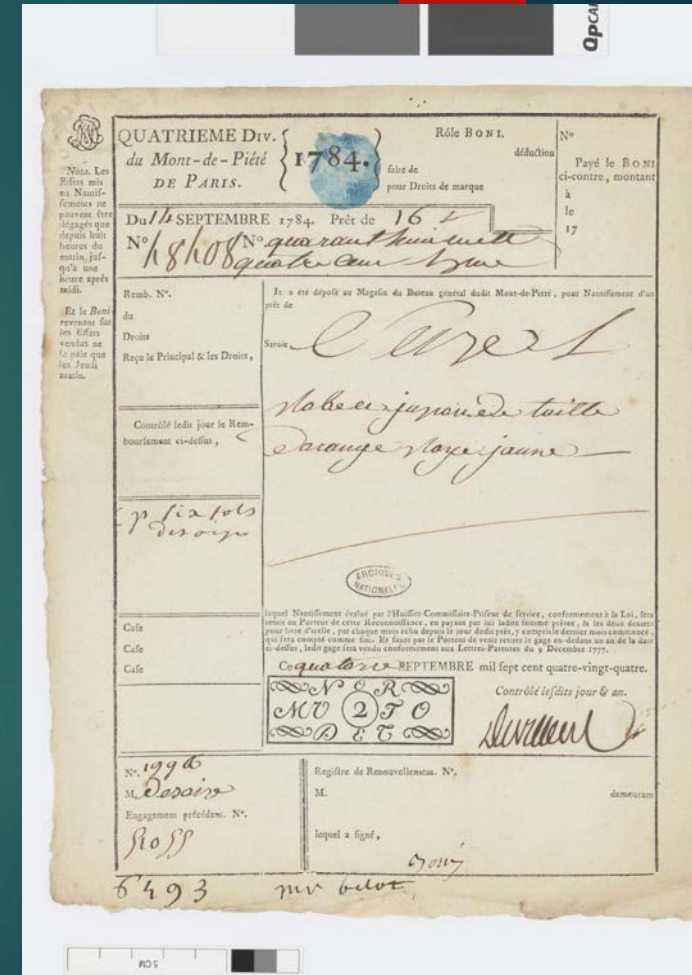 QPCARD
QUATRIEME DIV.
du Mont-de-Piété
DE PARIS.
1784.
Rôle BONI.
déduction
faite de
pour Droits de marque
N°
Payé le BONI
ci-contre, montant
à
le
17
Du 14 SEPTEMBRE 1784. Prêt de 16
N° 48408 N° quarante huit mille
quatre cent
Nota. Les
Effets mis
en Nantis-
sements ne
peuvent être
dégagés que
depuis huit
heures du
matin, jus-
qu'à une
heure après
midi.
Et le Boni
revenant sur
les Effets
vendus ne
se paie que
les Jeudi
matin.
Remb. N°.
du
Droits
Reçu le Principal & les Droits,
Contrôlé ledit jour le Rem-
boursement ci-dessus,
p six sols
Case
Case
Case
Il a été déposé au Magasin du Bureau général dudit Mont-de-Piété, pour Nantissement d'un
prêt de
Savoir,
Robe et jupon de
raye jaune
ARCHIVES
NATIONALES
lequel Nantissement évalué par l'Huissier-Commissaire-Priseur de service, conformément à la Loi, sera
remis au Porteur de cette Reconnoissance, en payant par lui ladite somme prêtée, & les deux deniers
pour livre d'icelle, par chaque mois échu depuis le jour dudit prêt, y compris le dernier mois commencé,
qui sera compté comme fini. Et faute par le Porteur de venir retirer le gage en-dedans un an de la date
ci-dessus, ledit gage sera vendu conformément aux Lettres-Patentes du 9 Décembre 1777.
Ce quatorze SEPTEMBRE mil sept cent quatre-vingt-quatre.
Contrôlé lesdits jour & an.
N E R
MU 2 T O
D E T
N°. 1996
M.
Engagement précédent. N°.
51055
Registre de Renouvellement. N°.
M.
demeurant
lequel a signé,
6493
5 CM